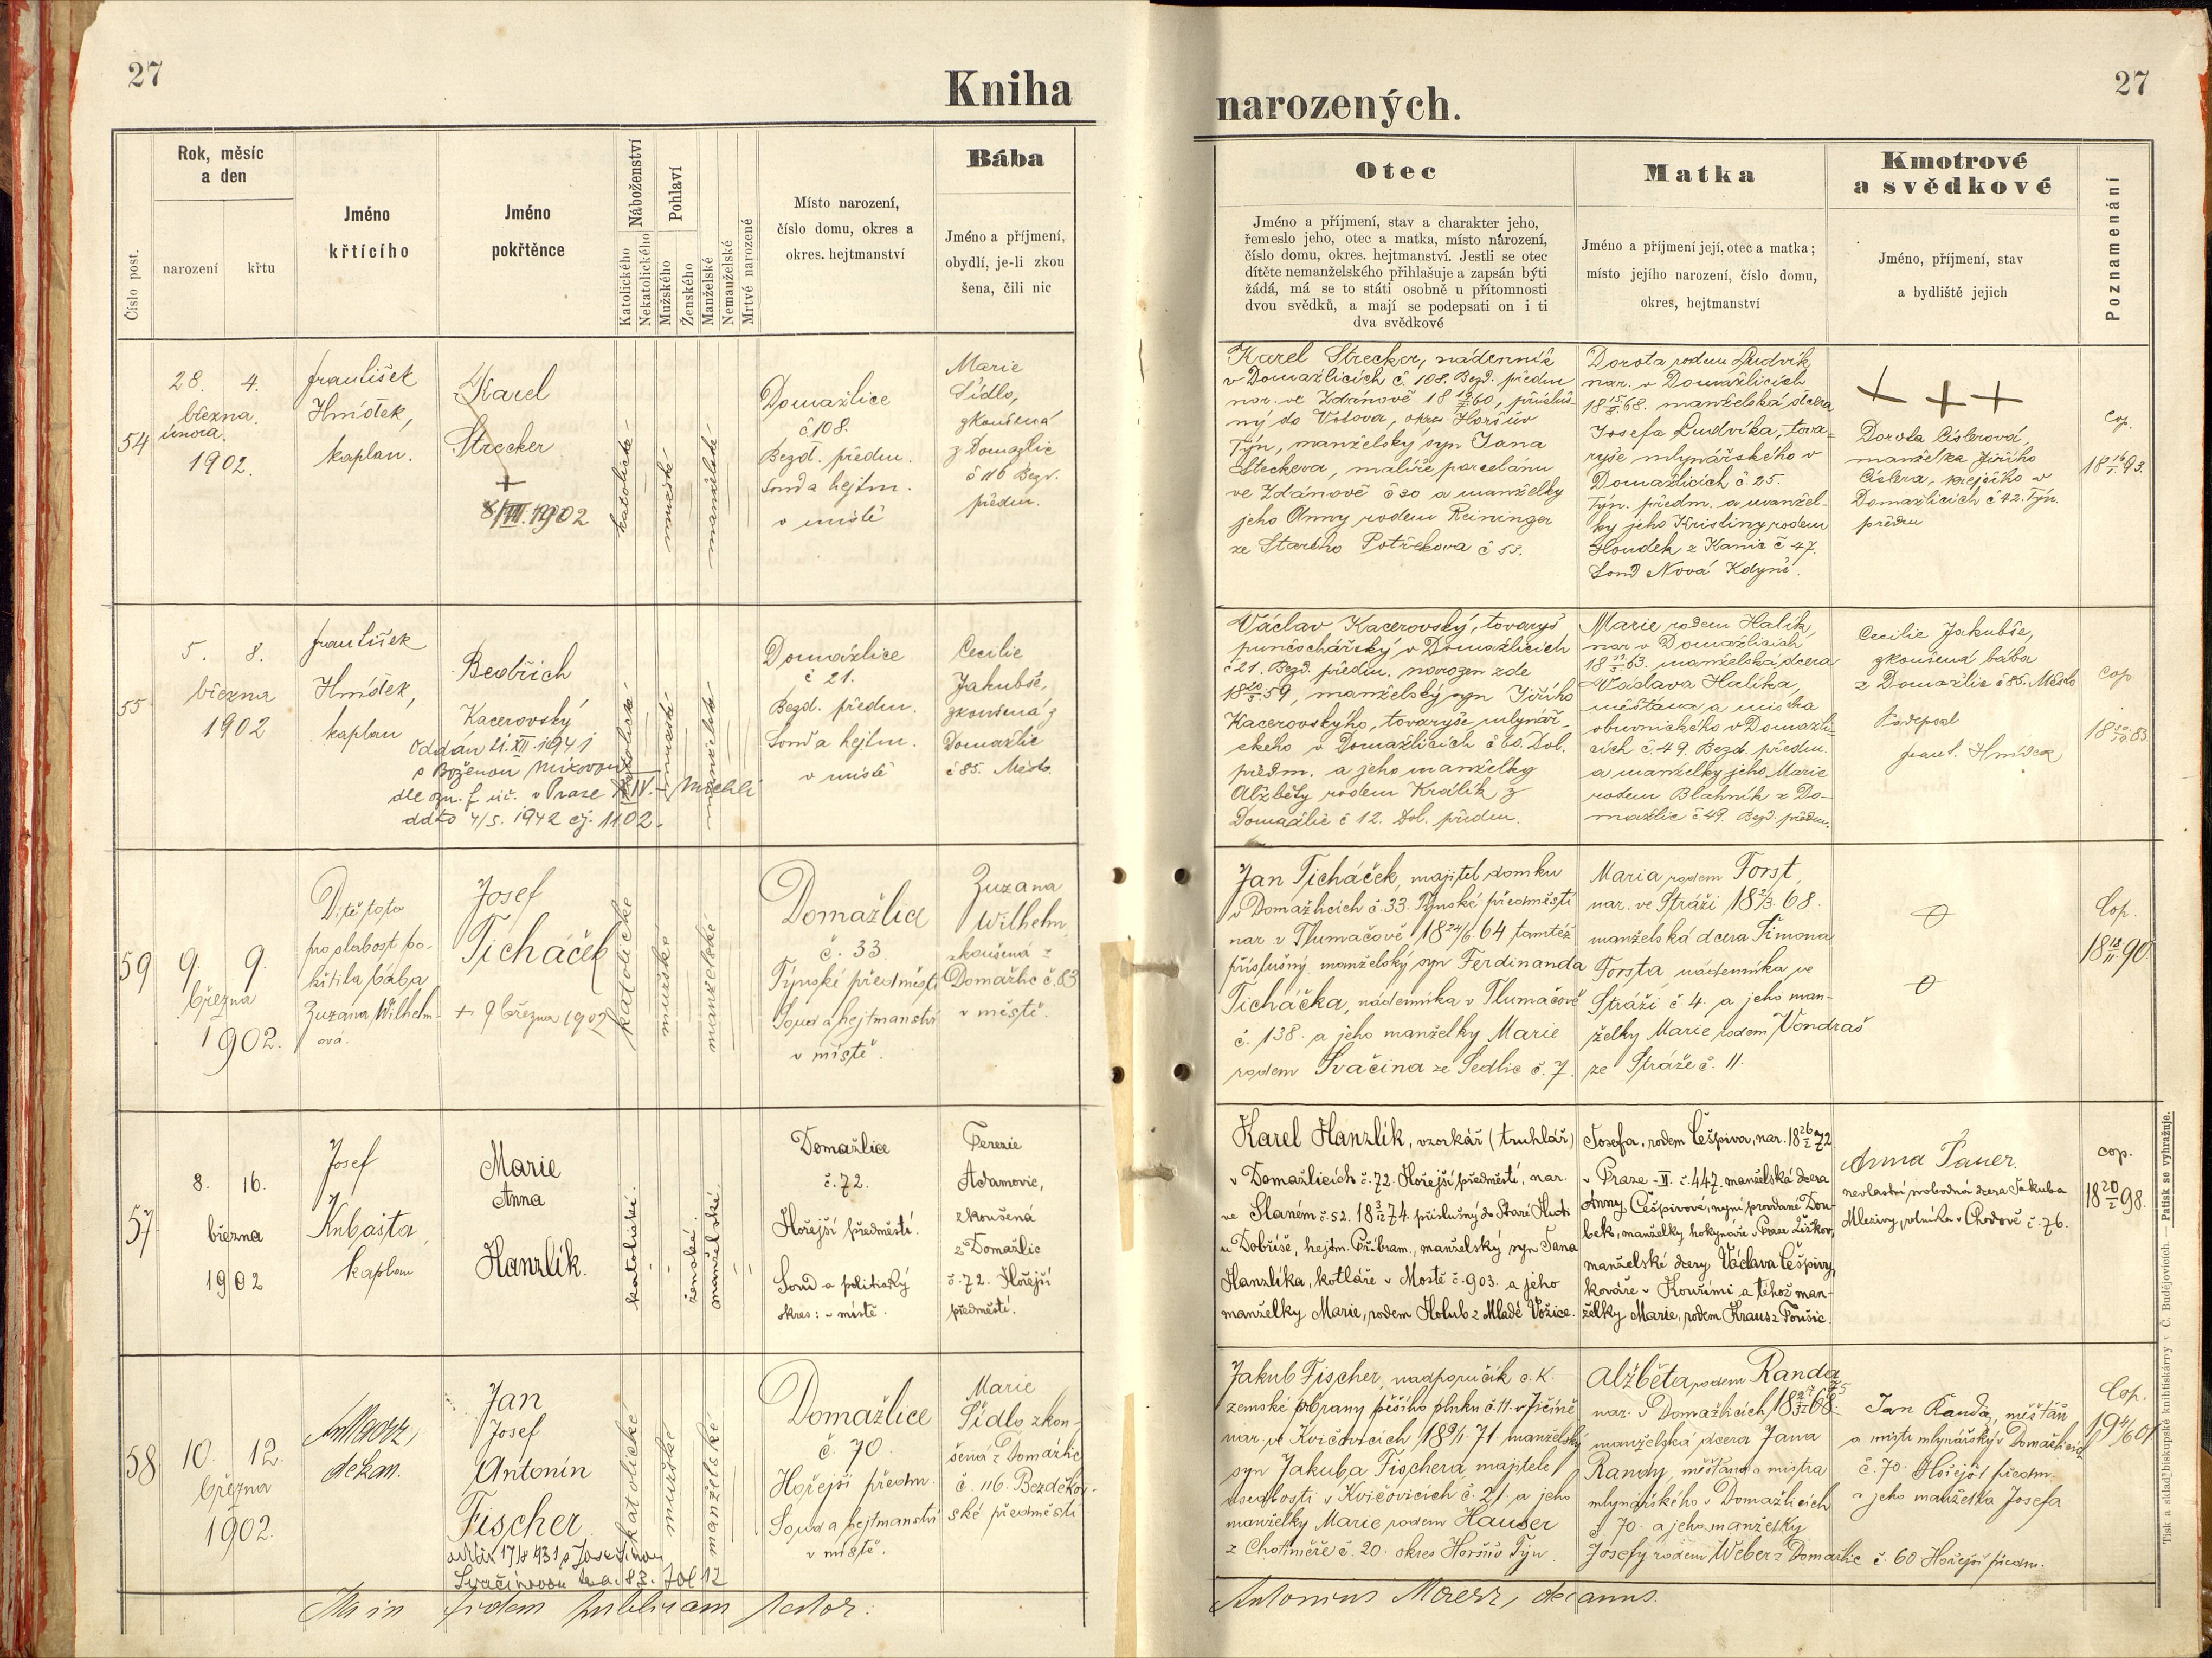 27
Kniha
narozených.
27
Číslo post.
Rok, měsíc
a den
narození
křtu
Jméno
křtícího
Jméno
pokřtěnce
Náboženství
Katolického
Nekatolického
Pohlaví
Mužského
Ženského
Manželské
Nemanželské
Mrtvé narozené
Místo narození,
číslo domu, okres a
okres. hejtmanství
Bába
Jméno a příjmení,
obydlí, je-li zkou
šena, čili nic
Otec
Jméno a příjmení, stav a charakter jeho,
řemeslo jeho, otec a matka, místo narození,
číslo domu, okres. hejtmanství. Jestli se otec
dítěte nemanželského přihlašuje a zapsán býti
žádá, má se to státi osobně u přítomnosti
dvou svědků, a mají se podepsati on i ti
dva svědkové
Matka
Jméno a příjmení její, otec a matka;
místo jejího narození, číslo domu,
okres, hejtmanství
Kmotrové
a svědkové
Jméno, příjmení, stav
a bydliště jejich
Poznamenání
54
28. 4.
března
února.
1902.
František
Hmíšek,
kaplan.
Karel
Strecker
+
8/VII. 1902
katolické
mužské
manželské
Domažlice
č 108.
Bezd. předm.
Soud a hejtm.
v místě
Marie
Sidlo,
zkoušená
z Domažlic
č 116 Bezd.
předm.
Karel Strecker, nádenník
v Domažlicích č. 108. Bezd. předm
nar. ve Ždánově 18 60, přísluš-
ný do Votova, okres Horšův
Týn, manželský syn Jana
Steckera, malíře porcelánu
ve Ždánově č 20 a manželky
jeho Anny rodem Reininger
ze Starého Potřekova č 55.
Dorota rodem Ludvík
nar. v Domažlicích
18 68. manželská dcera
Josefa Ludvíka, tova-
ryše mlynářského v
Domažlicích č. 25.
Týn. předm. a manžel-
ky jeho Kristiny rodem
Houdek z Kanic č 47.
Soud Nová Kdyně.
+ + +
Dorota Cislerová,
manželka Jiřího
Cislera, krejčího v
Domažlicích č 42. Týn.
předm
cop.
18 16/I. 93.
55
5. 8.
března
1902
František
Hmíšek,
kaplan
Bedřich
Kacerovský
Oddán 21. XII. 1941
s Boženou Mixovou
dle ozn. f. úč. v Praze XIV. - Michli
ddto 4/5. 1942 čj. 1102.
katolické
mužské
manželské
Domažlice
č 21.
Bezd. předm.
Soud a hejtm.
v místě
Cecilie
Jakubše,
zkoušená z
Domažlic
č 85. Město
Václav Kacerovský, tovaryš
punčochářský v Domažlicích
č 21. Bezd. předm. narozen zde
18 59, manželský syn Jiřího
Kacerovskýho, tovaryše mlynář-
ského v Domažlicích č 60. Dol.
předm. a jeho manželky
Alžběty rodem Králík z
Domažlic č 12. Dol. předm.
Marie rodem Halík,
nar v Domažlicích
18 63. manželská dcera
Václava Halíka,
měšťana a mistra
obuvnického v Domažli-
cích č. 49. Bezd. předm.
a manželky jeho Marie
rodem Blahník z Do-
mažlic č 49. Bezd. předm.
Cecilie Jakubše,
zkoušená bába
z Domažlic č 85. Město
Podepsal
Frant. Hmíšek
cop
18 83.
59
9. 9.
března
1902.
Dítě toto
pro slabost po-
křtila bába
Zuzana Wilhelm-
ová.
Josef
Ticháček
+ 9 března 1902
katolické
mužské
manželské
Domažlice
č. 33
Týnské předměstí
Soud a hejtmanství
v místě.
Zuzana
Wilhelm
zkoušená z
Domažlic č. 83
v městě.
Jan Ticháček, majitel domku
v Domažlicích č. 33. Týnské předměstí
nar. v Tlumačově 18 24/6. 64 tamtéž
příslušný manželský syn Ferdinanda
Ticháčka, nádenníka v Tlumačově
č. 138. a jeho manželky Marie
rodem Svačina ze Sedlic č. 7.
Maria rodem Forst,
nar. ve Stráži 18 2/3. 68.
manželská dcera Šimona
Forsta, nádenníka ve
Stráži č. 4. a jeho man-
želky Marie rodem Vondraš
ze Stráže č. 11.
Cop.
18 18/II. 90.
57
8. 16.
března
1902
Josef
Kubašta,
kaplan
Marie
Anna
Hanzlík.
katolické.
ženské.
manželské.
Domažlice
č. 72.
Hořejší předměstí.
Soud a politický
okres: v místě.
Terezie
Adamovic,
zkoušená
z Domažlic
č. 72. Hořejší
předměstí.
Karel Hanzlík, vzorkář (truhlář)
v Domažlicích č. 72. Hořejší předměstí, nar.
ve Slaném č. 52. 18 3/12 74. příslušný do Staré Huti
u Dobříše, hejtm. Příbram., manželský syn Jana
Hanzlíka, kotláře v Mostě č. 903. a jeho
manželky Marie, rodem Holub z Mladé Vožice.
Josefa, rodem Češpiva, nar. 18 26/2 72
v Praze - II. č. 447. manželská dcera
Anny Češpivové, nyní provdané Dou-
bek, manželky hokynáře v Praze Žižkov,
manželské dcery Václava Češpivy,
kováře v Kouřimi a téhož man-
želky Marie, rodem Kraus z Toušic.
Anna Pauer.
nevlastní svobodná dcera Jakuba
Mlezivy, rolníka v Chodově č. 76.
cop.
18 20/2 98.
58
10. 12.
března
1902.
Ant. Maerz,
děkan.
Jan
Josef
Antonín
Fischer
oddán 17/8 931 s Josefinou
Svačinovou
katolické
mužské
manželské
Domažlice
č. 70.
Hořejší předm.
Soud a hejtmanství
v místě.
Marie
Sidlo zkou-
šená z Domažlic
č. 116. Bezděkov-
ské předměstí
Jakub Fischer, nadporučík c. K.
zemské obrany pěšího pluku č. 11. v Jičíně
nar. ve Kvičovicích 18 9/1. 71 manželský
syn Jakuba Fischera, majitele
usedlosti v Kvičovicích č. 21. a jeho
manželky Marie rodem Hauser
z Chotiměře č. 20. okres Horšův Týn.
Alžběta rodem Randa
nar. v Domažlicích
manželská dcera Jana
Randy, měšťana a mistra
mlynářského v Domažlicích
č. 70. a jeho manželky
Josefy rodem Weber z Domažlic č. 60 Hořejší předm.
Jan Randa, měšťan
a mistr mlynářský v Domažlicích
č. 70. Hořejší předm.
a jeho manželka Josefa
Cop.
19 4/6 01
Ita in fidem publicam testor:
Antonius Maerz, decanus.
Tisk a sklad biskupské knihtiskárny v Č. Budějovicích. — Patisk se vyhražuje.